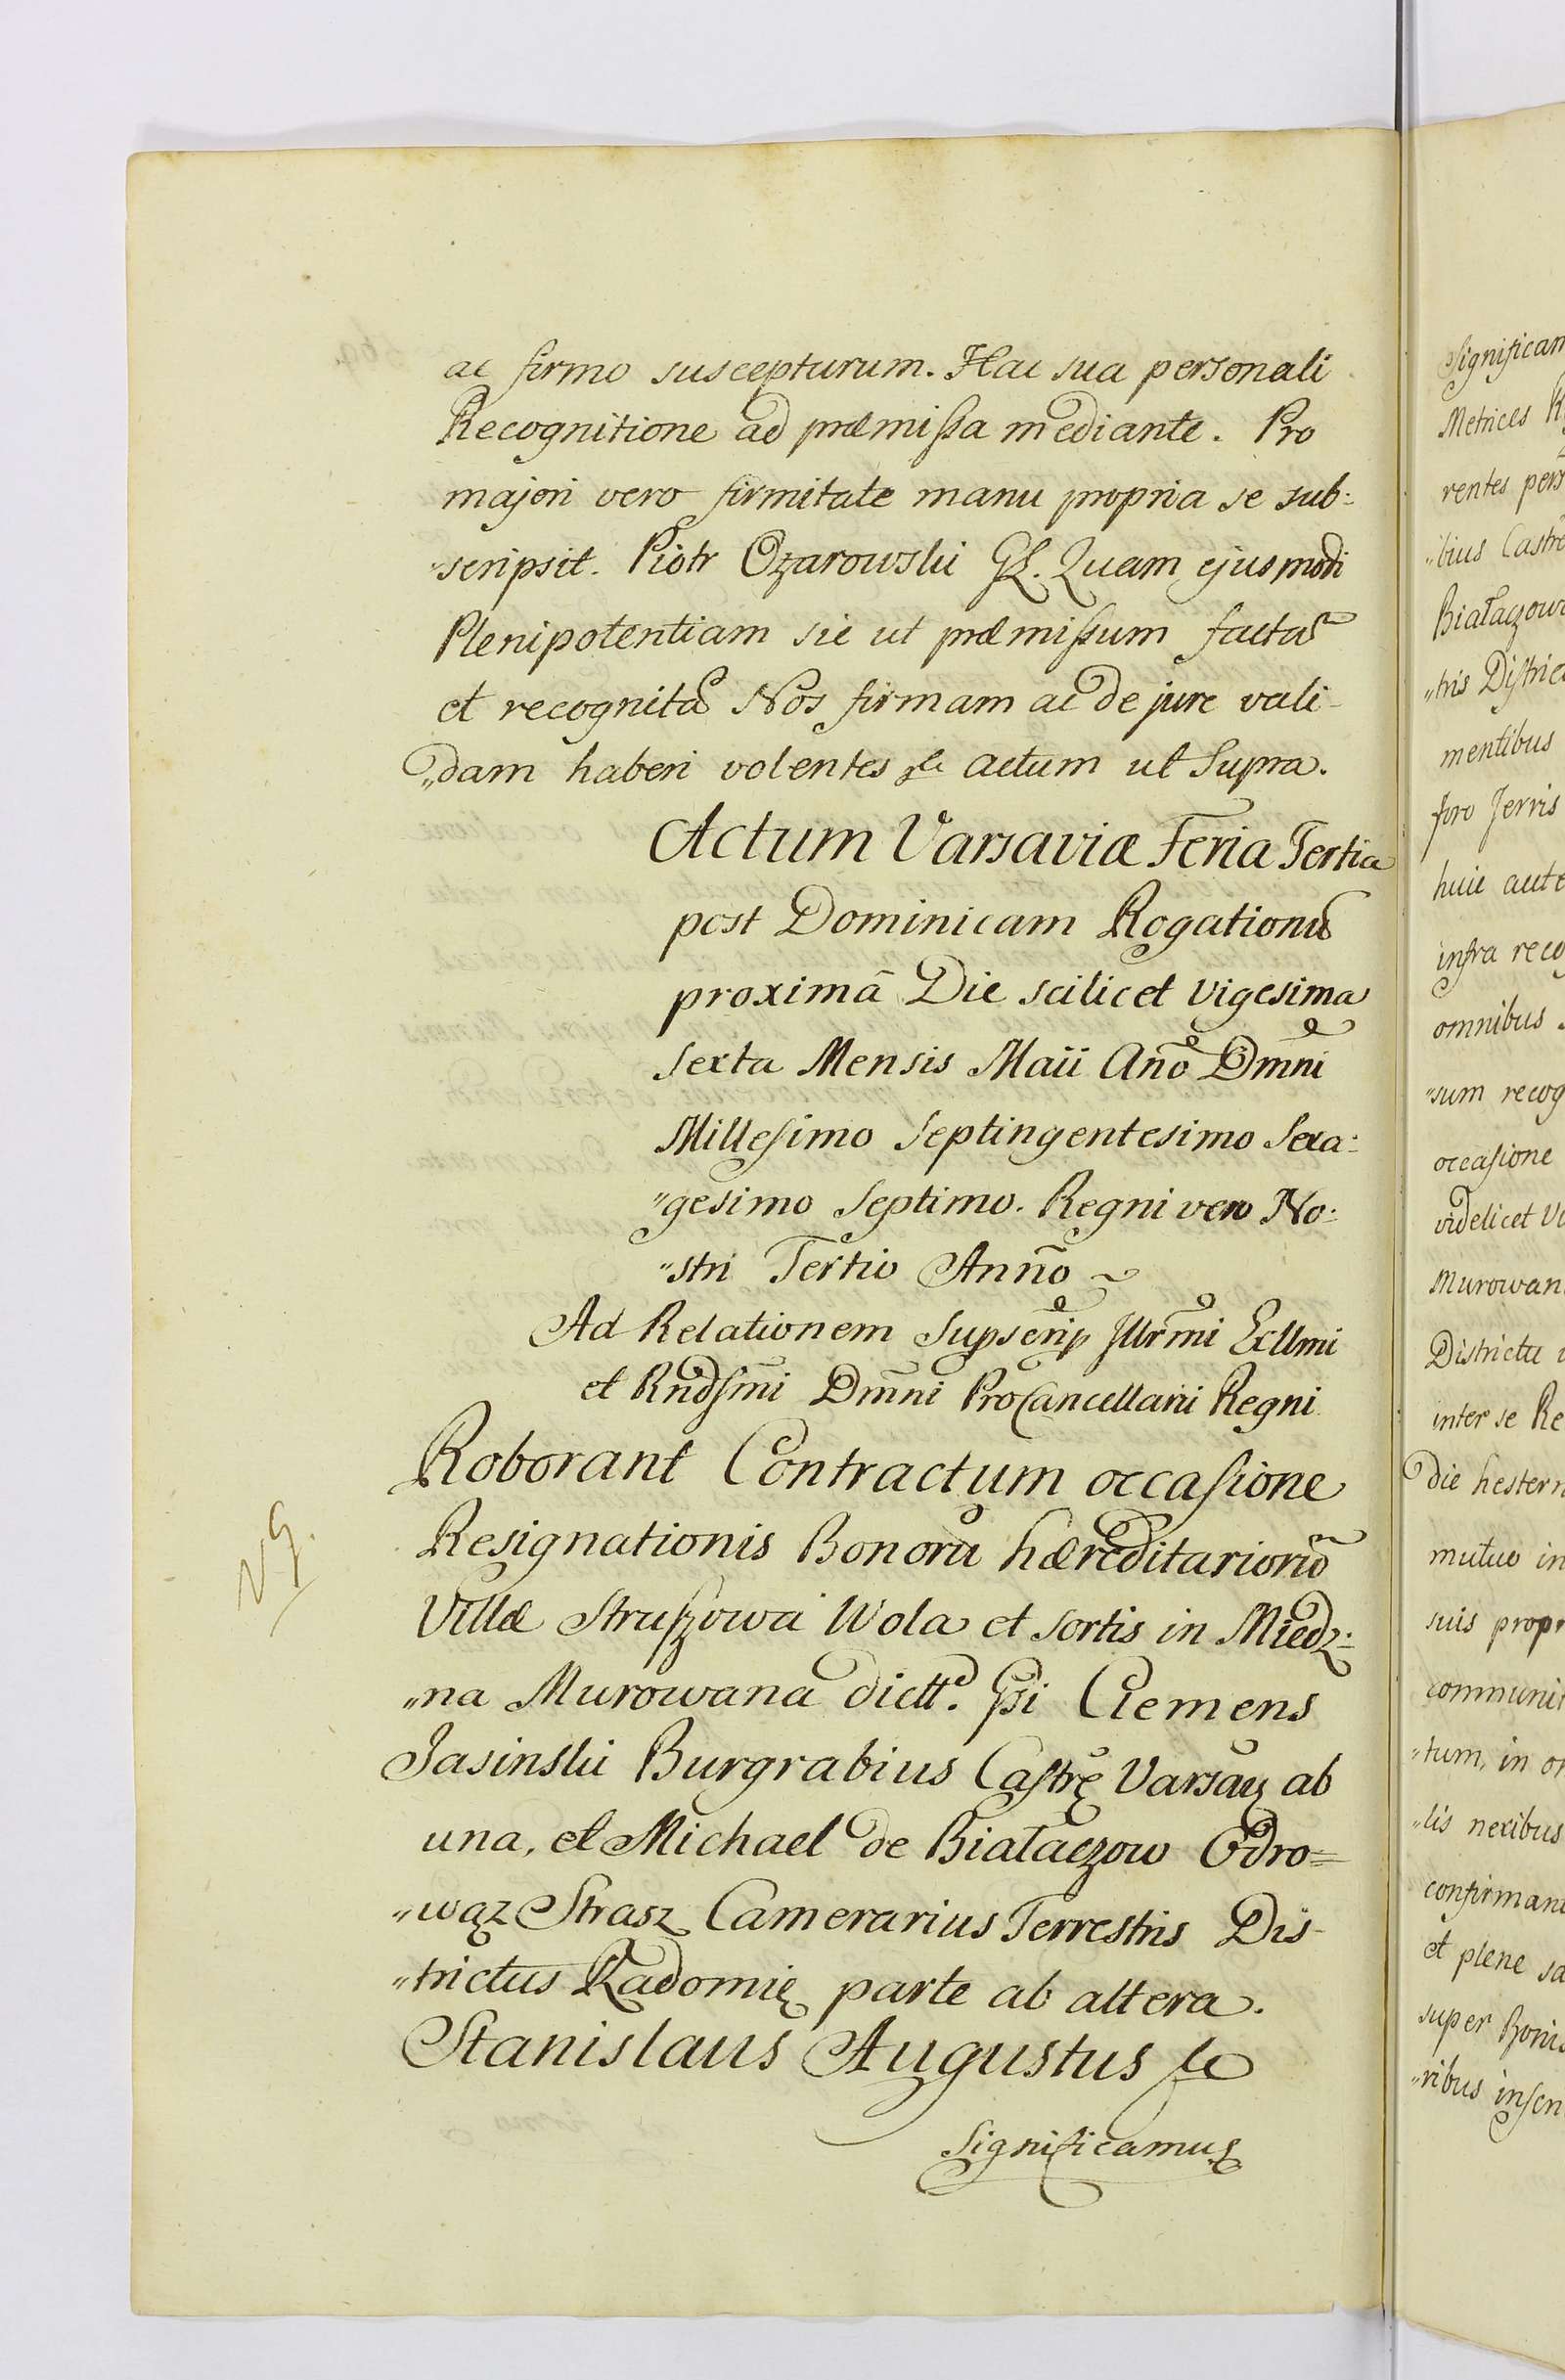 ac firmo suscepturum. Hac sua personali
Recognitione ad præmissa mediante. Pro
majori vero firmitate manu propria se sub:
"scripsit. Piotr Ożarowski GL. Quam ejusmodi
Plenipotentiam sic ut præmissum factã
et recognitã Nos firmam ac de jure vali-
"dam haberi volentes &c actum ut Supra.
Actum Varsaviæ Feria Tertia
post Dominicam Rogationũ
proximã Die scilicet vigesima
Sexta Mensis Maii Año Dmñi
Millesimo Septingentesimo Sexa:
"gesimo Septimo. Regni vero No:
"stri Tertio Anño ~
Ad Relationem Supscrip Jllrm̃i Ecllmi
et Rñdsm̃i Dm̃ni ProCancellarii Regni
Roborant Contractum occasione
Resignationis Bonorũ hæreditariorũ
Villæ Struszowa Wola et sortis in Miedz:
"na Murowana dictt. Gsi Clemens
Jasinski Burgrabius Castrę Varsaų ab
una, et Michael de Białaczow Odro=
"wąz Strasz Camerarius Terrestris Dis-
"trictus Radomię parte ab altera.
Stanislaus Augustus &c
Significamus
NG.
Significam
Metrices R
rentes pers
"bius Castre
Białaczow
"tris Distric
mentibus
foro Jervis
huic aute
infra reco
omnibus
"sum recog
occasione
videlicet Vi
Murowan
Districtu
inter se Re
die hestern
mutuo in
suis propr
communit
"tum, in o
"lis nexibus
confirmant
et plene sa
super Boni
"ribus inscri